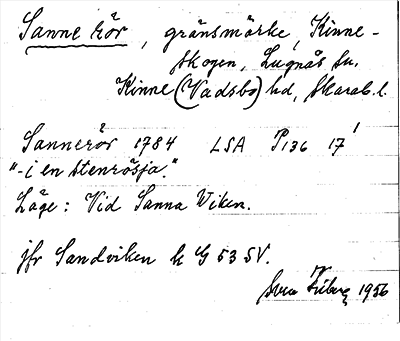 Sanne rör, gränsmärke, Kinne-
skogen, Lugnås sn.
Kinne (Vadsbo) hd, Skarab. l.
Sannerör 1784 LSA P136 17¹
"-i en stenrösja."
Läge: Vid Sanna Wiken.
jfr Sandviken k G 53 SV.
Sven Friberg 1956